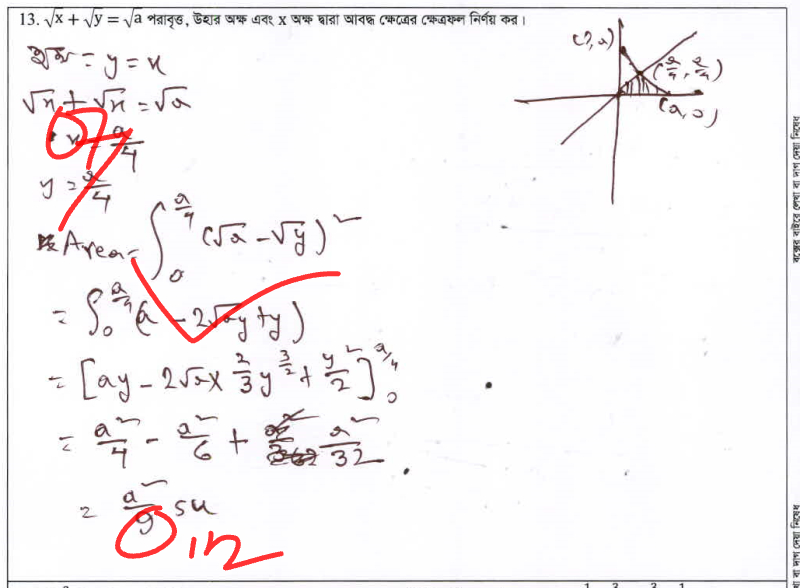 13. √x + √y = √a পরাবৃত্ত, উহার অক্ষ এবং x অক্ষ দ্বারা আবদ্ধ ক্ষেত্রের ক্ষেত্রফল নির্ণয় কর।
অক্ষ = y = x
√x + √x = √a
x = a/4
y = a/4
Area = ∫₀^{a/4} (√a - √y)²
= ∫₀^{a/4} (a - 2√ay + y)
= [ay - 2√a × 2/3 y^{3/2} + y²/2]₀^{a/4}
= a²/4 - a²/6 + a²/32
= a²/9 su
(a/4, a/4)
(a, 0)
বক্সের বাইরে লেখা বা দাগ দেয়া নিষেধ
বা দাগ দেয়া নিষেধ